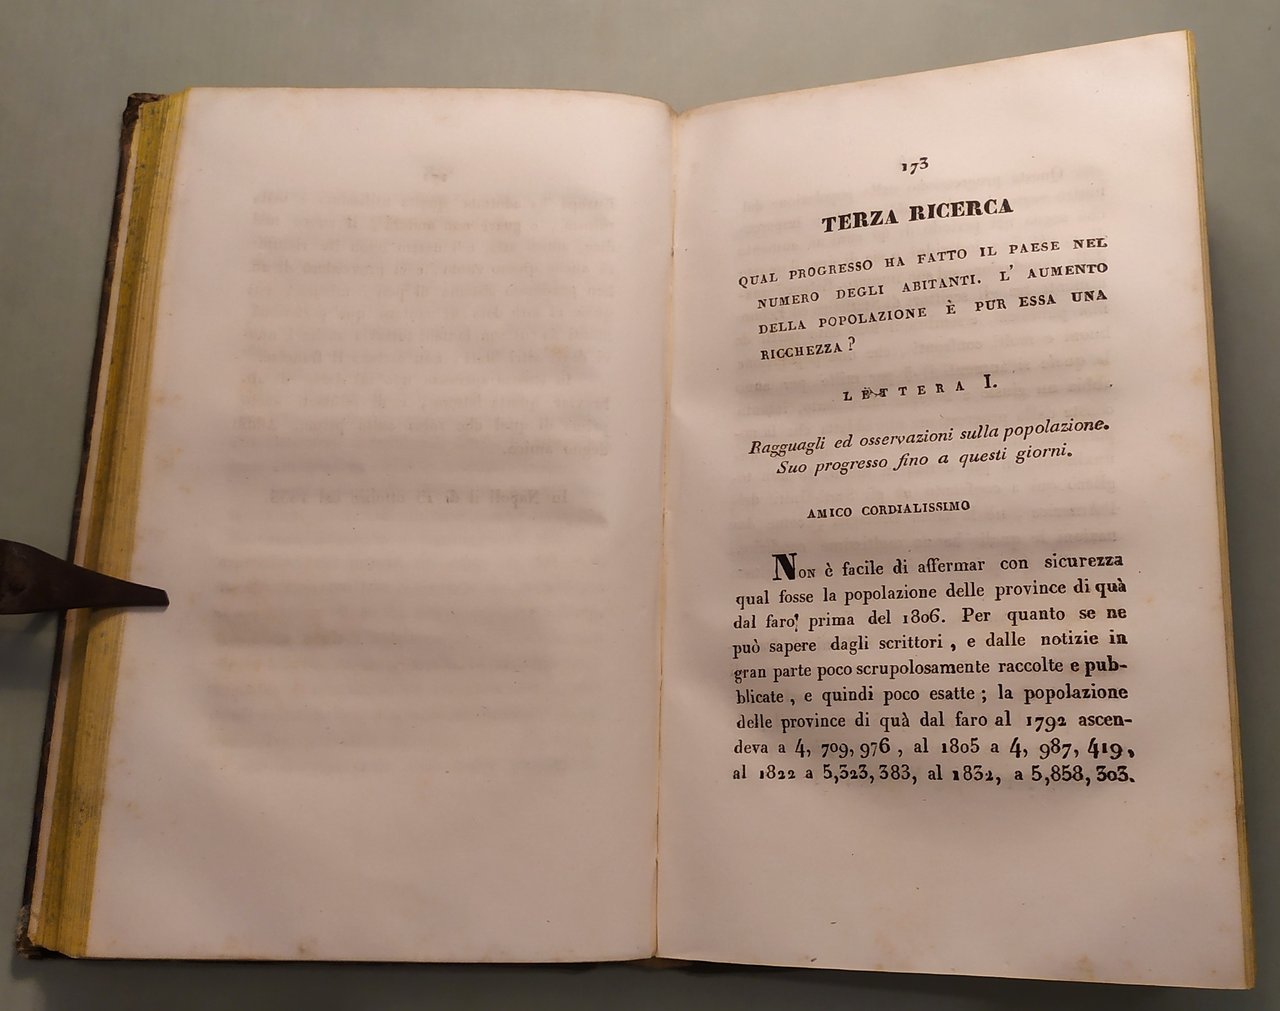 173
TERZA RICERCA
QUAL PROGRESSO HA FATTO IL PAESE NEL
NUMERO DEGLI ABITANTI. L' AUMENTO
DELLA POPOLAZIONE È PUR ESSA UNA
RICCHEZZA?
LETTERA I.
Ragguagli ed osservazioni sulla popolazione.
Suo progresso fino a questi giorni.
AMICO CORDIALISSIMO
NON è facile di affermar con sicurezza
qual fosse la popolazione delle province di quà
dal faro, prima del 1806. Per quanto se ne
può sapere dagli scrittori, e dalle notizie in
gran parte poco scrupolosamente raccolte e pub-
blicate, e quindi poco esatte; la popolazione
delle province di quà dal faro al 1792 ascen-
deva a 4, 709, 976, al 1805 a 4, 987, 419,
al 1822 a 5,323, 383, al 1832, a 5,858, 303.